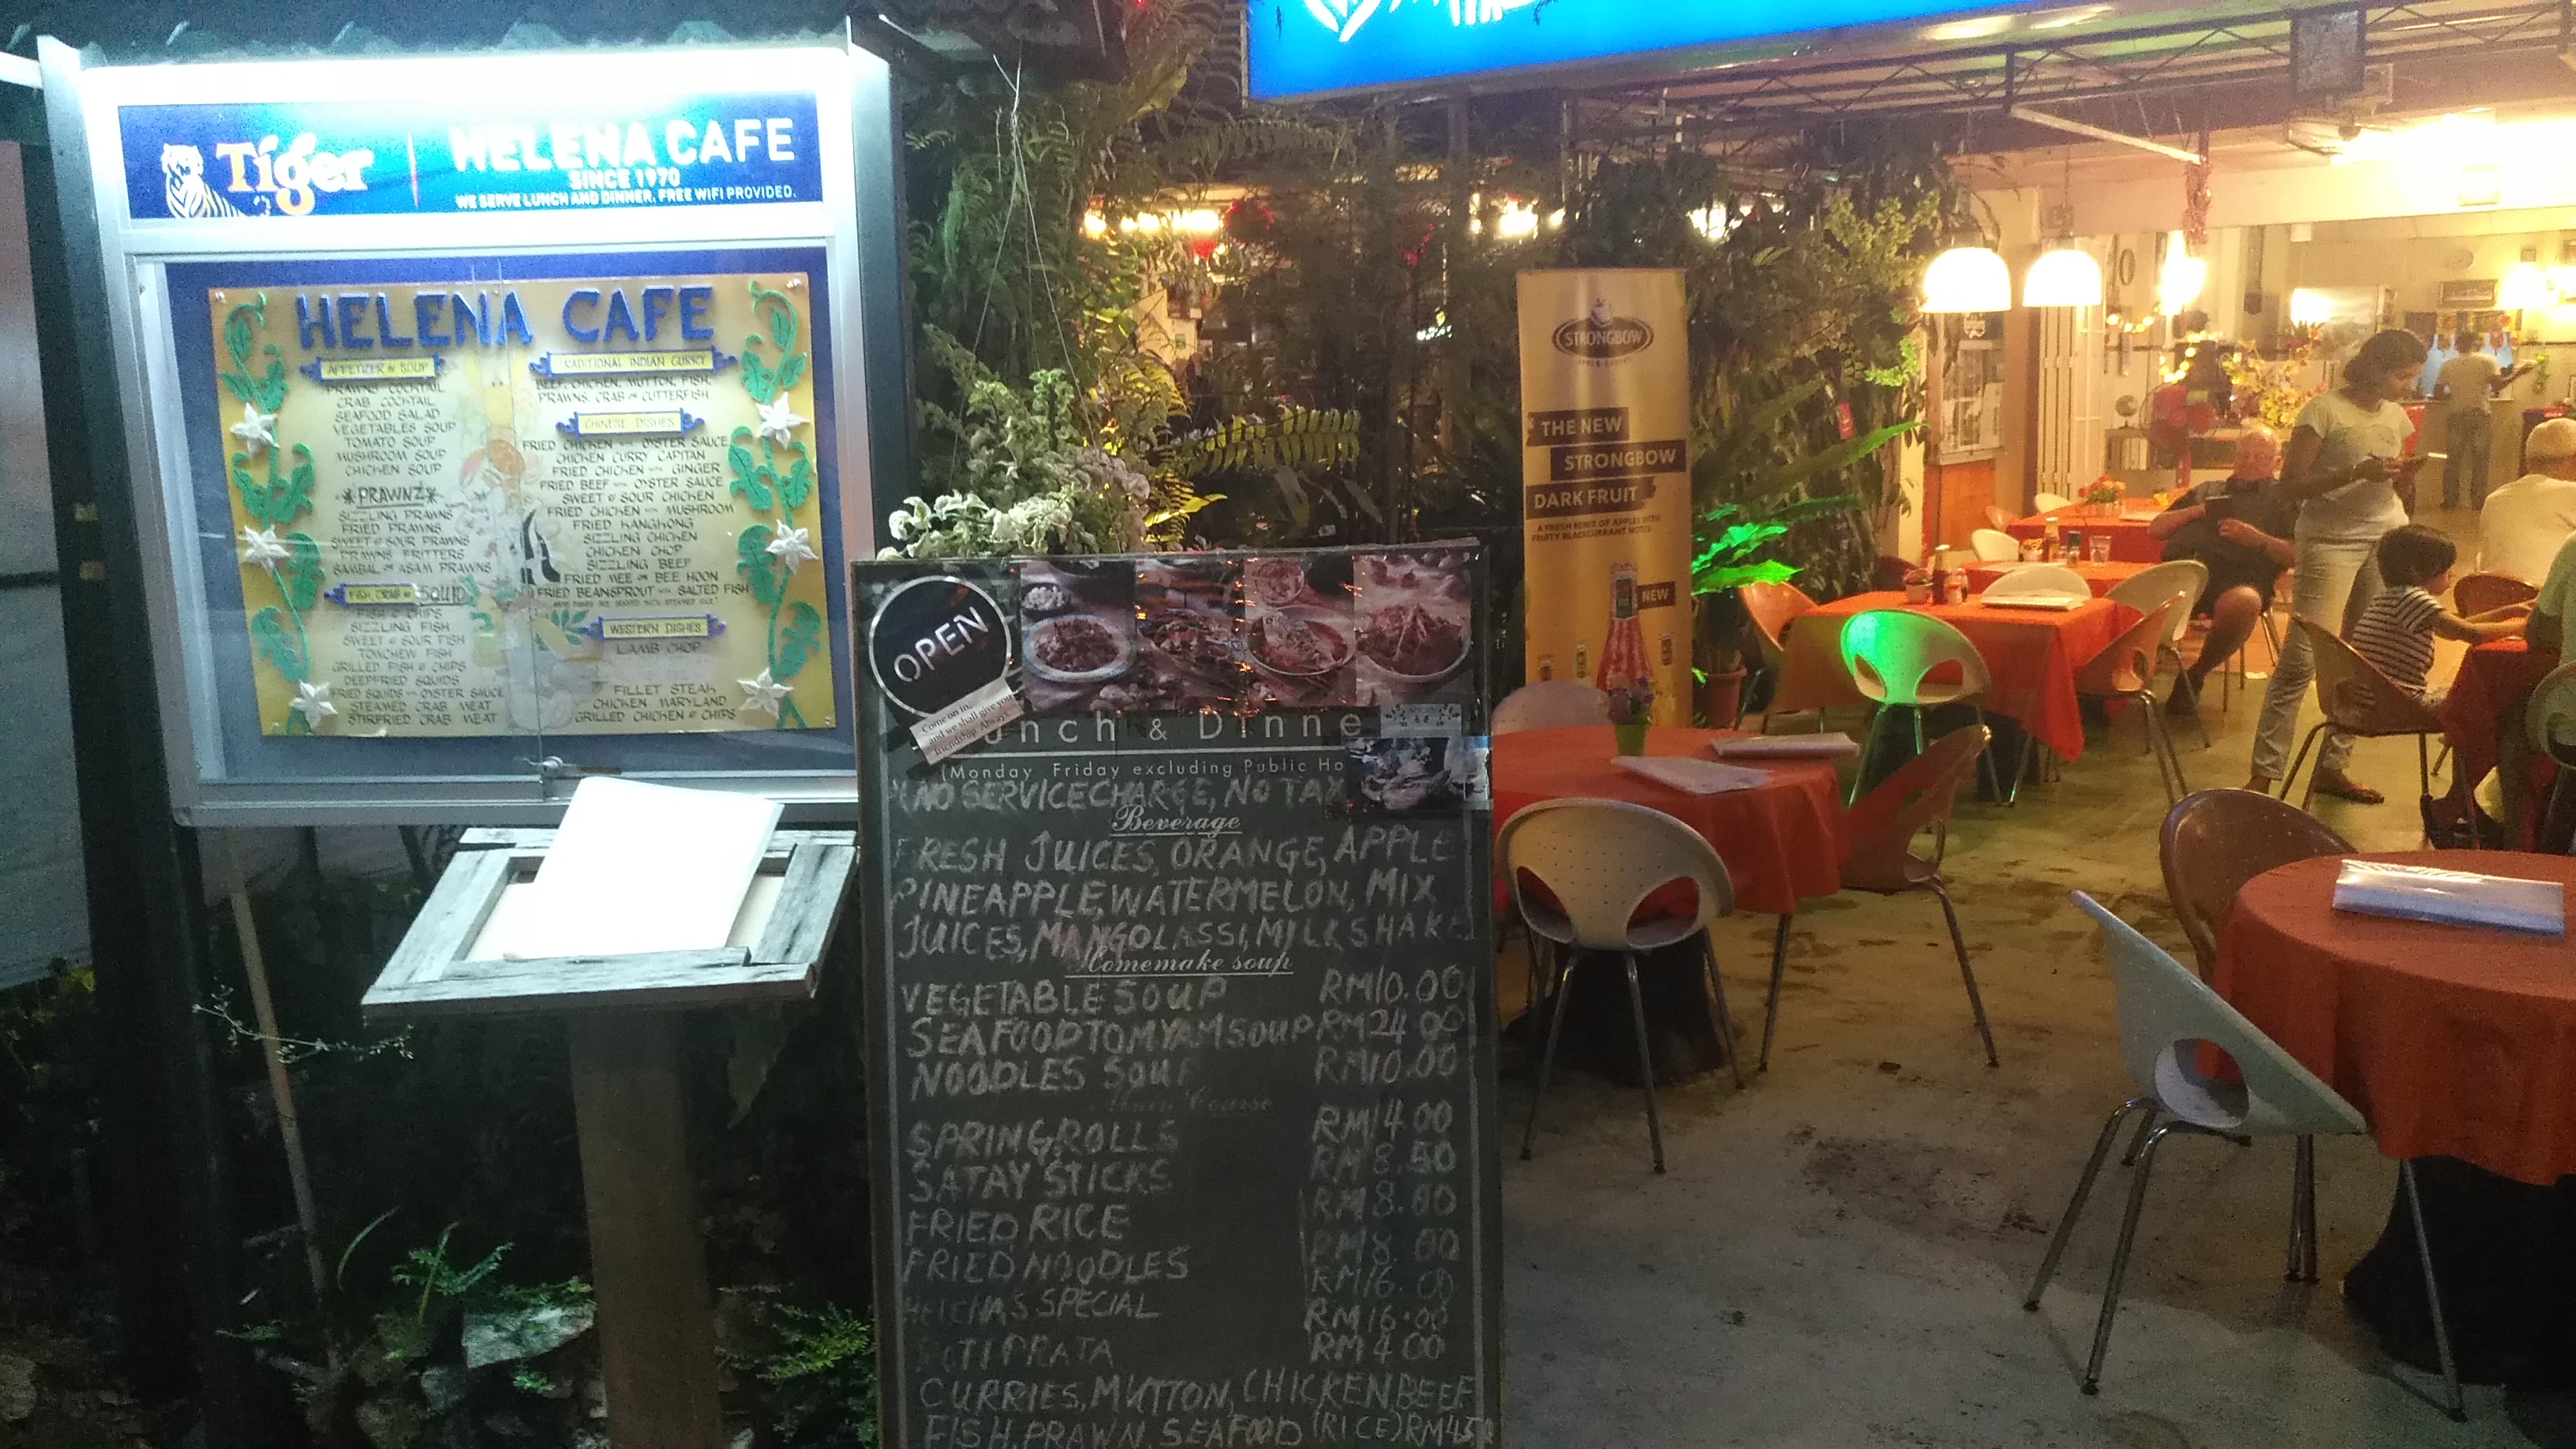 Tiger
HELENA CAFE
SINCE 1970
WE SERVE LUNCH AND DINNER. FREE WIFI PROVIDED.
HELENA CAFE
APPETIZER & SOUP
PRAWNS COCKTAIL
CRAB COCKTAIL
SEAFOOD SALAD
VEGETABLES SOUP
TOMATO SOUP
MUSHROOM SOUP
CHICKEN SOUP
PRAWNZ
SIZZLING PRAWNS
FRIED PRAWNS
SWEET & SOUR PRAWNS
PRAWNS FRITTERS
SAMBAL OR ASAM PRAWNS
FISH, CRAB & SQUID
FISH & CHIPS
SIZZLING FISH
SWEET & SOUR FISH
TOMCHEW FISH
GRILLED FISH & CHIPS
DEEPFRIED SQUIDS
FRIED SQUIDS WITH OYSTER SAUCE
STEAMED CRAB MEAT
STIRFRIED CRAB MEAT
TRADITIONAL INDIAN CURRY
BEEF, CHICKEN, MUTTON, FISH,
PRAWNS, CRAB OR CUTTERFISH.
CHINESE DISHES
FRIED CHICKEN WITH OYSTER SAUCE
CHICKEN CURRY CAPITAN
FRIED CHICKEN WITH GINGER
FRIED BEEF WITH OYSTER SAUCE
SWEET & SOUR CHICKEN
FRIED CHICKEN WITH MUSHROOM
FRIED KANGKONG
SIZZLING CHICKEN
CHICKEN CHOP
SIZZLING BEEF
FRIED MEE OR BEE HOON
FRIED BEANSPROUT WITH SALTED FISH
WESTERN DISHES
LAMB CHOP
FILLET STEAK
CHICKEN MARYLAND
GRILLED CHICKEN & CHIPS
OPEN
Come on in,
and we shall give you
friendship Always
unch & Dinne
(Monday Friday excluding Public Ho
NO SERVICE CHARGE, NO TAX
Beverage
FRESH JUICES, ORANGE, APPLE
PINEAPPLE, WATERMELON, MIX
JUICES, MANGOLASSI, MILKSHAKE
Homemake soup
VEGETABLE SOUP RM10.00
SEAFOOD TOMYAM SOUP RM24 00
NOODLES SOUP RM10.00
Main Course
SPRINGROLLS RM14.00
SATAY STICKS RM8.50
FRIED RICE RM8.00
FRIED NOODLES RM8 00
RM16.00
HELENA'S SPECIAL RM16.00
ROTI PRATA RM4 00
CURRIES, MUTTON, CHICKEN, BEEF
FISH, PRAWN, SEAFOOD (RICE)
STRONGBOW
THE NEW
STRONGBOW
DARK FRUIT
A FRESH REMIX OF APPLES WITH
FRUITY BLACKCURRANT NOTES
NEW